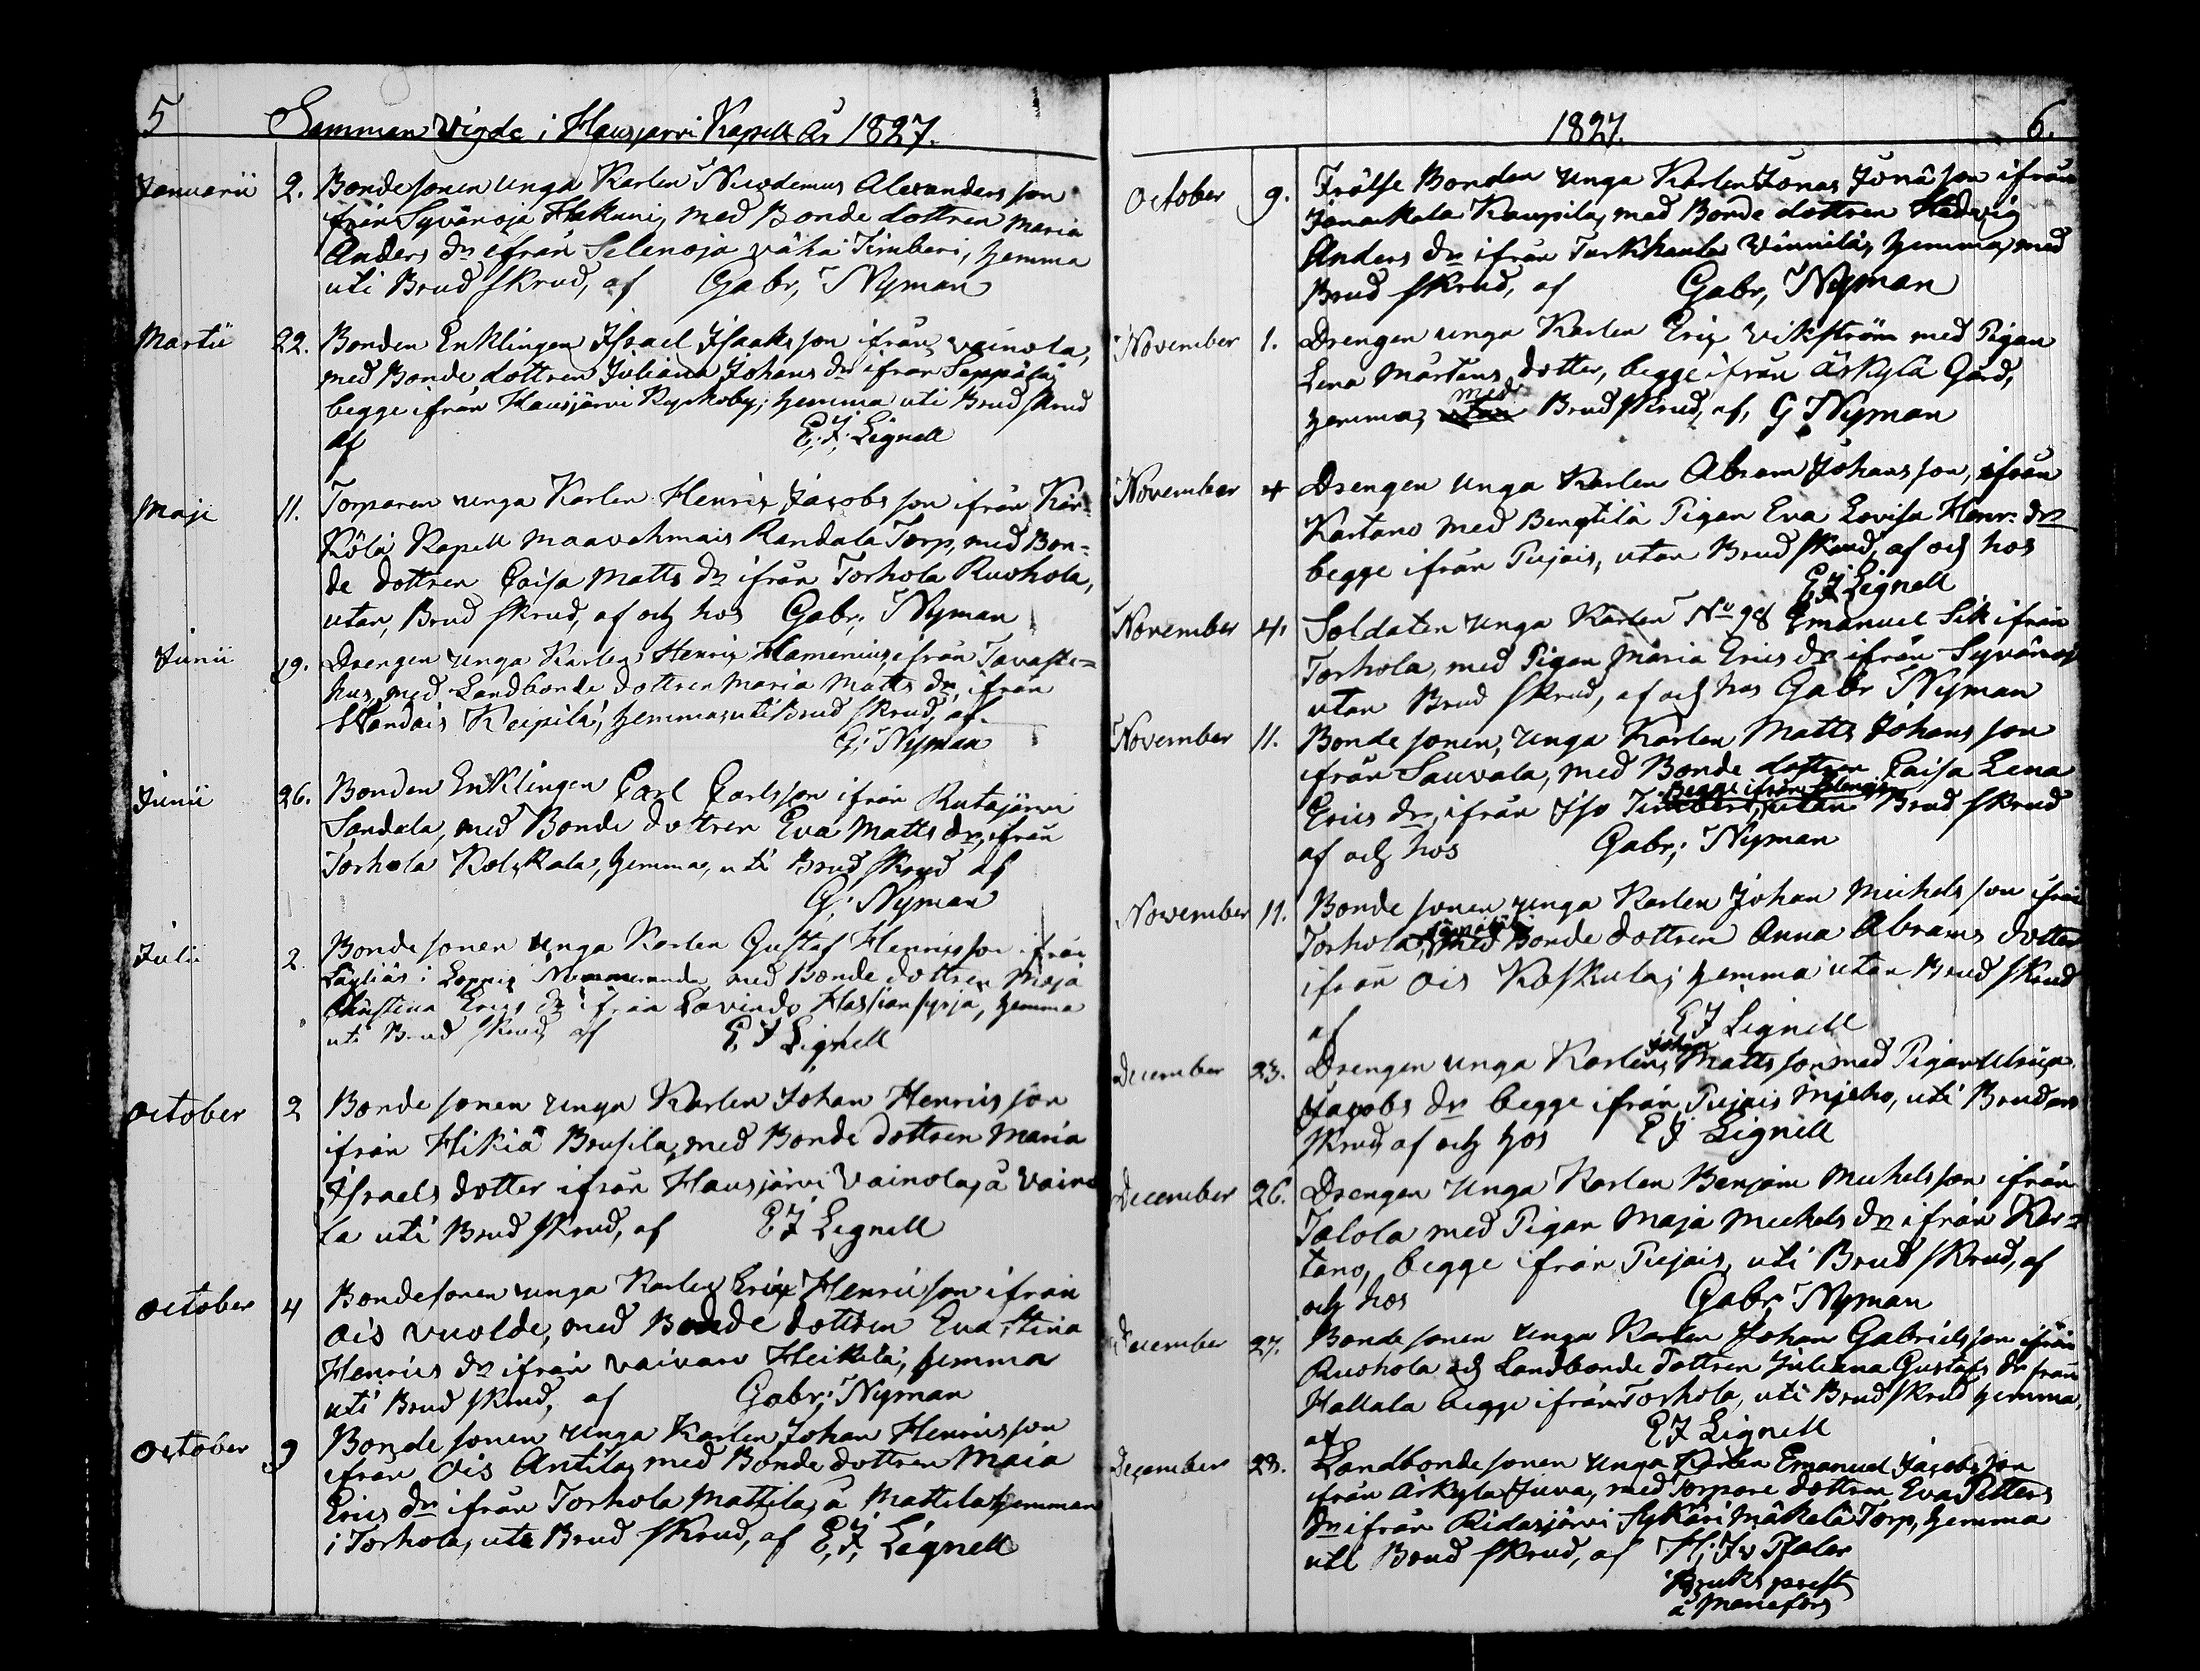 5 Samman Vigde i Hausjärvi Kapell År 1827.
Januarii 2. Bondesonen unga Karlen Nicodemus Alexanders son
från Syvänoja Hakuni, med Bonde dottren Maria
Anders dr ifrån Selenoja vähä Timberi, hemma
uti Brud skrud, af Gabr, Nyman
Martii 22. Bonden Enklingen Israel Isaaksson ifrån Vainola,
med Bonde dottren Juliana Johans dr ifrån Seppälä
begge ifrån Hausjärvi Kyrkoby; hemma uti Brud skrud
af E. J. Lignell
Maji 11. Torparen unga Karlen Henrix Jacobs son ifrån Kär
kölä Kapell Maavehmais Randala Torp, med Bon=
de dottren Caisa Matts dr ifrån Torhola Ruohola,
utan, Brud skrud, af och hos Gabr, Nyman
Junii 19. Drengen unga Karlen Henrix Flamenius ifrån Tavaste=
hus, med Landbonde dottren Maria Matts dr, ifrån
Keipilä, hemma, uti Brud skrud, af
G: Nyman
Junii 26. Bonden Enklingen Carl Carlsson ifrån Rutajärvi
Sandala, med Bonde dottren Eva Matts dr, ifrån
Torhola Kolkkala, hemma, uti Brud skrud af
G: Nyman
Julii 2. Bonde sonen unga Karlen Gustaf Henricsson ifrån
Läyliäs i Loppis med Bonde dottren Maja
Christina Erics dr ifrån Lavindo Hassiansyrjä, hemma
uti Brud skrud, af E J Lignell
October 2 Bonde sonen unga Karlen Johan Henrics son
ifrån Hikiä Brusila, med Bonde dottren Maria
Israels dotter ifrån Hausjärvi Vainola, å Vaino
la uti Brud skrud, af E J Lignell
October 4 Bondesonen unga Karlen Erix Henricson ifrån
Ois Vuolde, med Bonde dottren Eva Stina
Henrics dr ifrån Vaivaro Heikilä, hemma
uti Brud skrud, af Gabr: Nyman
October 9 Bonde sonen unga Karlen Johan Henricsson
ifrån Ois Antila, med Bonde dottren Maia
Erics dr ifrån Torhola Mattila, å Mattila hemman
i Torhola, uti Brud skrud, af E. J. Lignell
1827. 6.
October 9. Frälse Bonden unga Karlen Jonas Jonä son ifrån
Janackala Kaupila, med Bonde dottren Hedvig
Anders dr ifrån Turkhauta Vinnilä, hemma, med
Brud skrud, af Gabr, Nyman
November 1. Drengen unga Karlen Eriz Vikström med Pigan
Lena Mårtens dotter, begge ifrån Äskylä Gård,
med
hemma, utan Brud skrud, af, G Nyman
November 4 Drengen unga Karlen Abram Johansson, ifrån
Kartano med Bengtilä Pigan Eva Lovisa Henr: dr
begge ifrån Pujais, utan Brud skrud, af och hos
E J Lignell
November 4. Soldaten unga Karlen No 98 Emanuel Sik ifrån
Torhola, med Pigan Maria Erics dr ifrån Syvänoj
utan Brud skrud, af och hos Gabr Nyman
November 11. Bonde sonen, unga Karlen Matts Johans son
ifrån Sauvala, med Bonde dottren Caisa Lena
Begge ifrån Selenoja
Erics dr, ifrån Iso Timberi, utan Brud skrud
af och hos Gabr; Nyman
November 11. Bonde sonen unga Karlen Johan Michels son ifrån
Torhola, med Bonde dottren Anna Abrams dotter
ifrån Ois Koskula; hemma utan Brud skrud
af E J Lignell
Johan
December 23. Drengen unga Karlen, Mattsson med Pigan Ulrica
Jacobs dr begge ifrån Pujais uti Brudars
skrud af och hos E J Lignell
December 26. Drengen unga Karlen Benjam Michelsson ifrån
Talola med Pigan Maja Michels dr ifrån Kar=
tano, begge ifrån Pujais, uti Brud skrud, af
och hos Gabr, Nyman
December 27. Bonde sonen unga Karlen Johan Gabrielsson ifrån
Ruohola och Landbonde dottren Juliana Gustafs dr från
Hallala begge ifrån Torhola, uti Brudskrud hemma,
af E J Lignell
December 28. Landbonde sonen unga Karlen Emanuel Jacobsson
ifrån Äskylä Juva, med Torpare dottren Eva Petters
dr ifrån Ridasjärvi Sykäri Mäkelä Torp, hemma
uti Brud skrud, af H: J v Pfaler
Bruks prest
å Mariefors